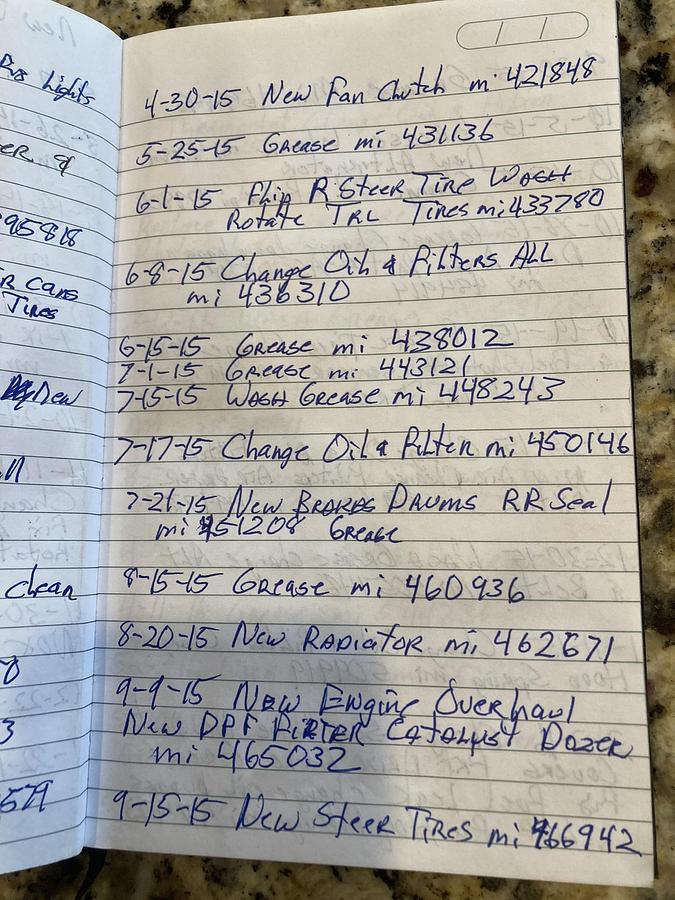 Lights
ER &
95818
R Cans
Tires
New
Clean
0
3
579
4-30-15 New Fan Clutch mi 421848
5-25-15 Grease mi 431136
6-1-15 Flip R Steer Tire WASH
Rotate TRL Tires mi 433780
6-8-15 Change Oil & Filters ALL
mi 436310
6-15-15 Grease mi 438012
7-1-15 Grease mi 443121
7-15-15 WASH Grease mi 448243
7-17-15 Change Oil & Filter mi 450146
7-21-15 New BRAKES DRUMS RR Seal
mi 451208 Grease
8-15-15 Grease mi 460936
8-20-15 New RADiator mi 462671
9-9-15 New Engine Overhaul
New DPF FILTER Catalyst Dozer
mi 465032
9-15-15 New Steer Tires mi 466942